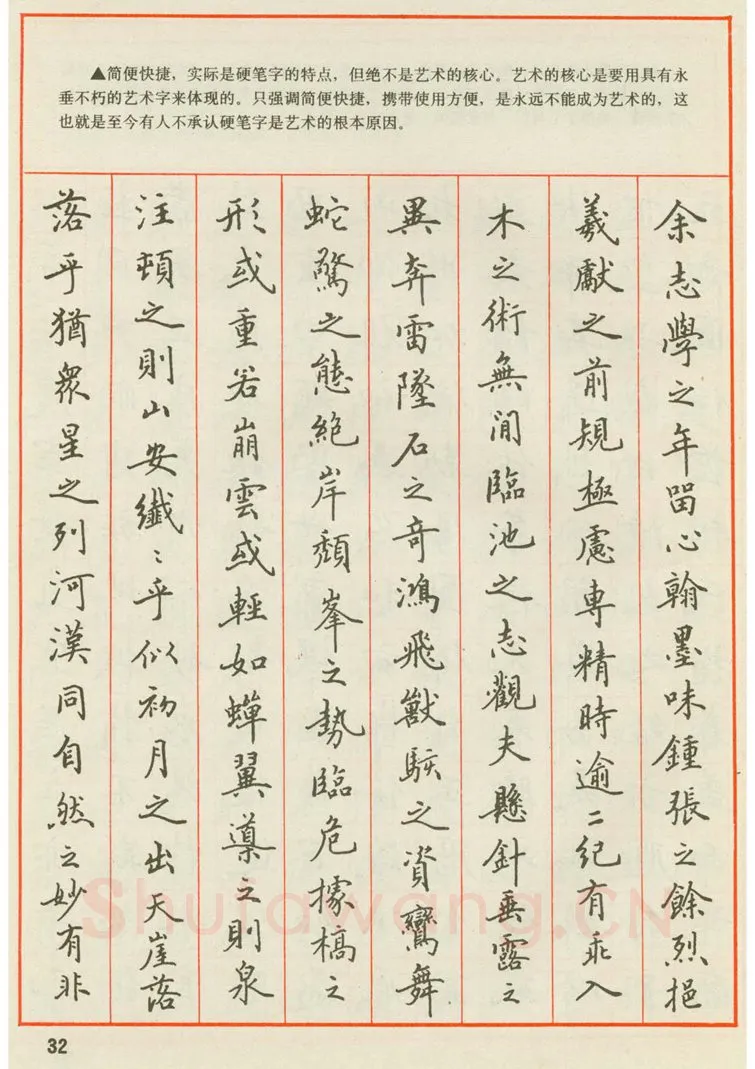 ▲简便快捷，实际是硬笔字的特点，但绝不是艺术的核心。艺术的核心是要用具有永
垂不朽的艺术字来体现的。只强调简便快捷，携带使用方便，是永远不能成为艺术的，这
也就是至今有人不承认硬笔字是艺术的根本原因。
余志學之年留心翰墨味鍾張之餘烈挹
羲獻之前規極慮專精時逾二紀有乖入
木之術無間臨池之志觀夫懸針垂露之
異奔雷墜石之奇鴻飛獸駭之資鸞舞
蛇驚之態絕岸頹峯之勢臨危據槁之
形或重若崩雲或輕如蟬翼導之則泉
注頓之則山安纖〻乎似初月之出天崖落
落乎猶衆星之列河漢同自然之妙有非
Shufawang.CN
32